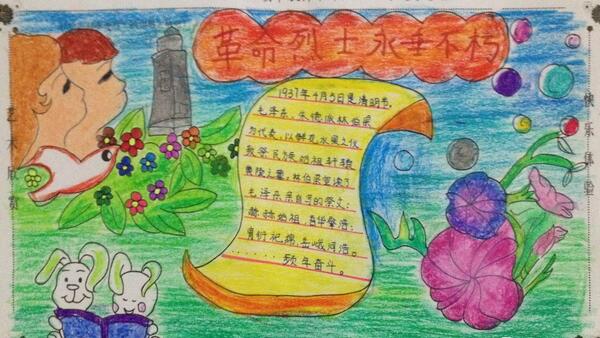 革命烈士永垂不朽
1937年4月5日是清明节,
毛泽东、朱德派林伯渠
为代表,以鲜花水果之仪
致祭民族始祖轩辕
黄陵之墓。林伯渠宣读了
毛泽东亲自写的祭文:
赫赫始祖,吾华肇造;
胄衍祀绵,岳峨河浩。
......年奋斗。
艺术欣赏
快乐体验